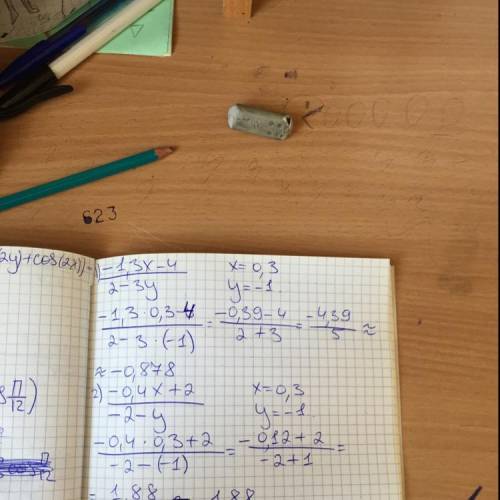 623
2y)+cos(2x))-
1) (-1,3x-4)/(2-3y)    x=0,3
y=-1
(-1,3·0,3-4)/(2-3·(-1)) = (-0,39-4)/(2+3) = (-4,39)/5 ≈
≈ -0,878
2) (-0,4x+2)/(-2-y)    x=0,3
y=-1
(-0,4·0,3+2)/(-2-(-1)) = (-0,12+2)/(-2+1) =
П/12)
= 1,88 1,88